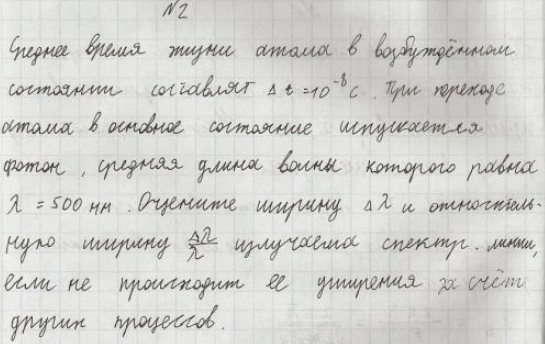 №2
Среднее время жизни атома в возбуждённом
состоянии составлят Δt = 10⁻⁸ с. При переходе
атома в основное состояние испускается
фотон, средняя длина волны которого равна
λ = 500 нм. Оцените ширину Δλ и относитель-
ную ширину Δλ/λ излучаемa спектр. линии,
если не происходит ее уширения за счёт
других процессов.